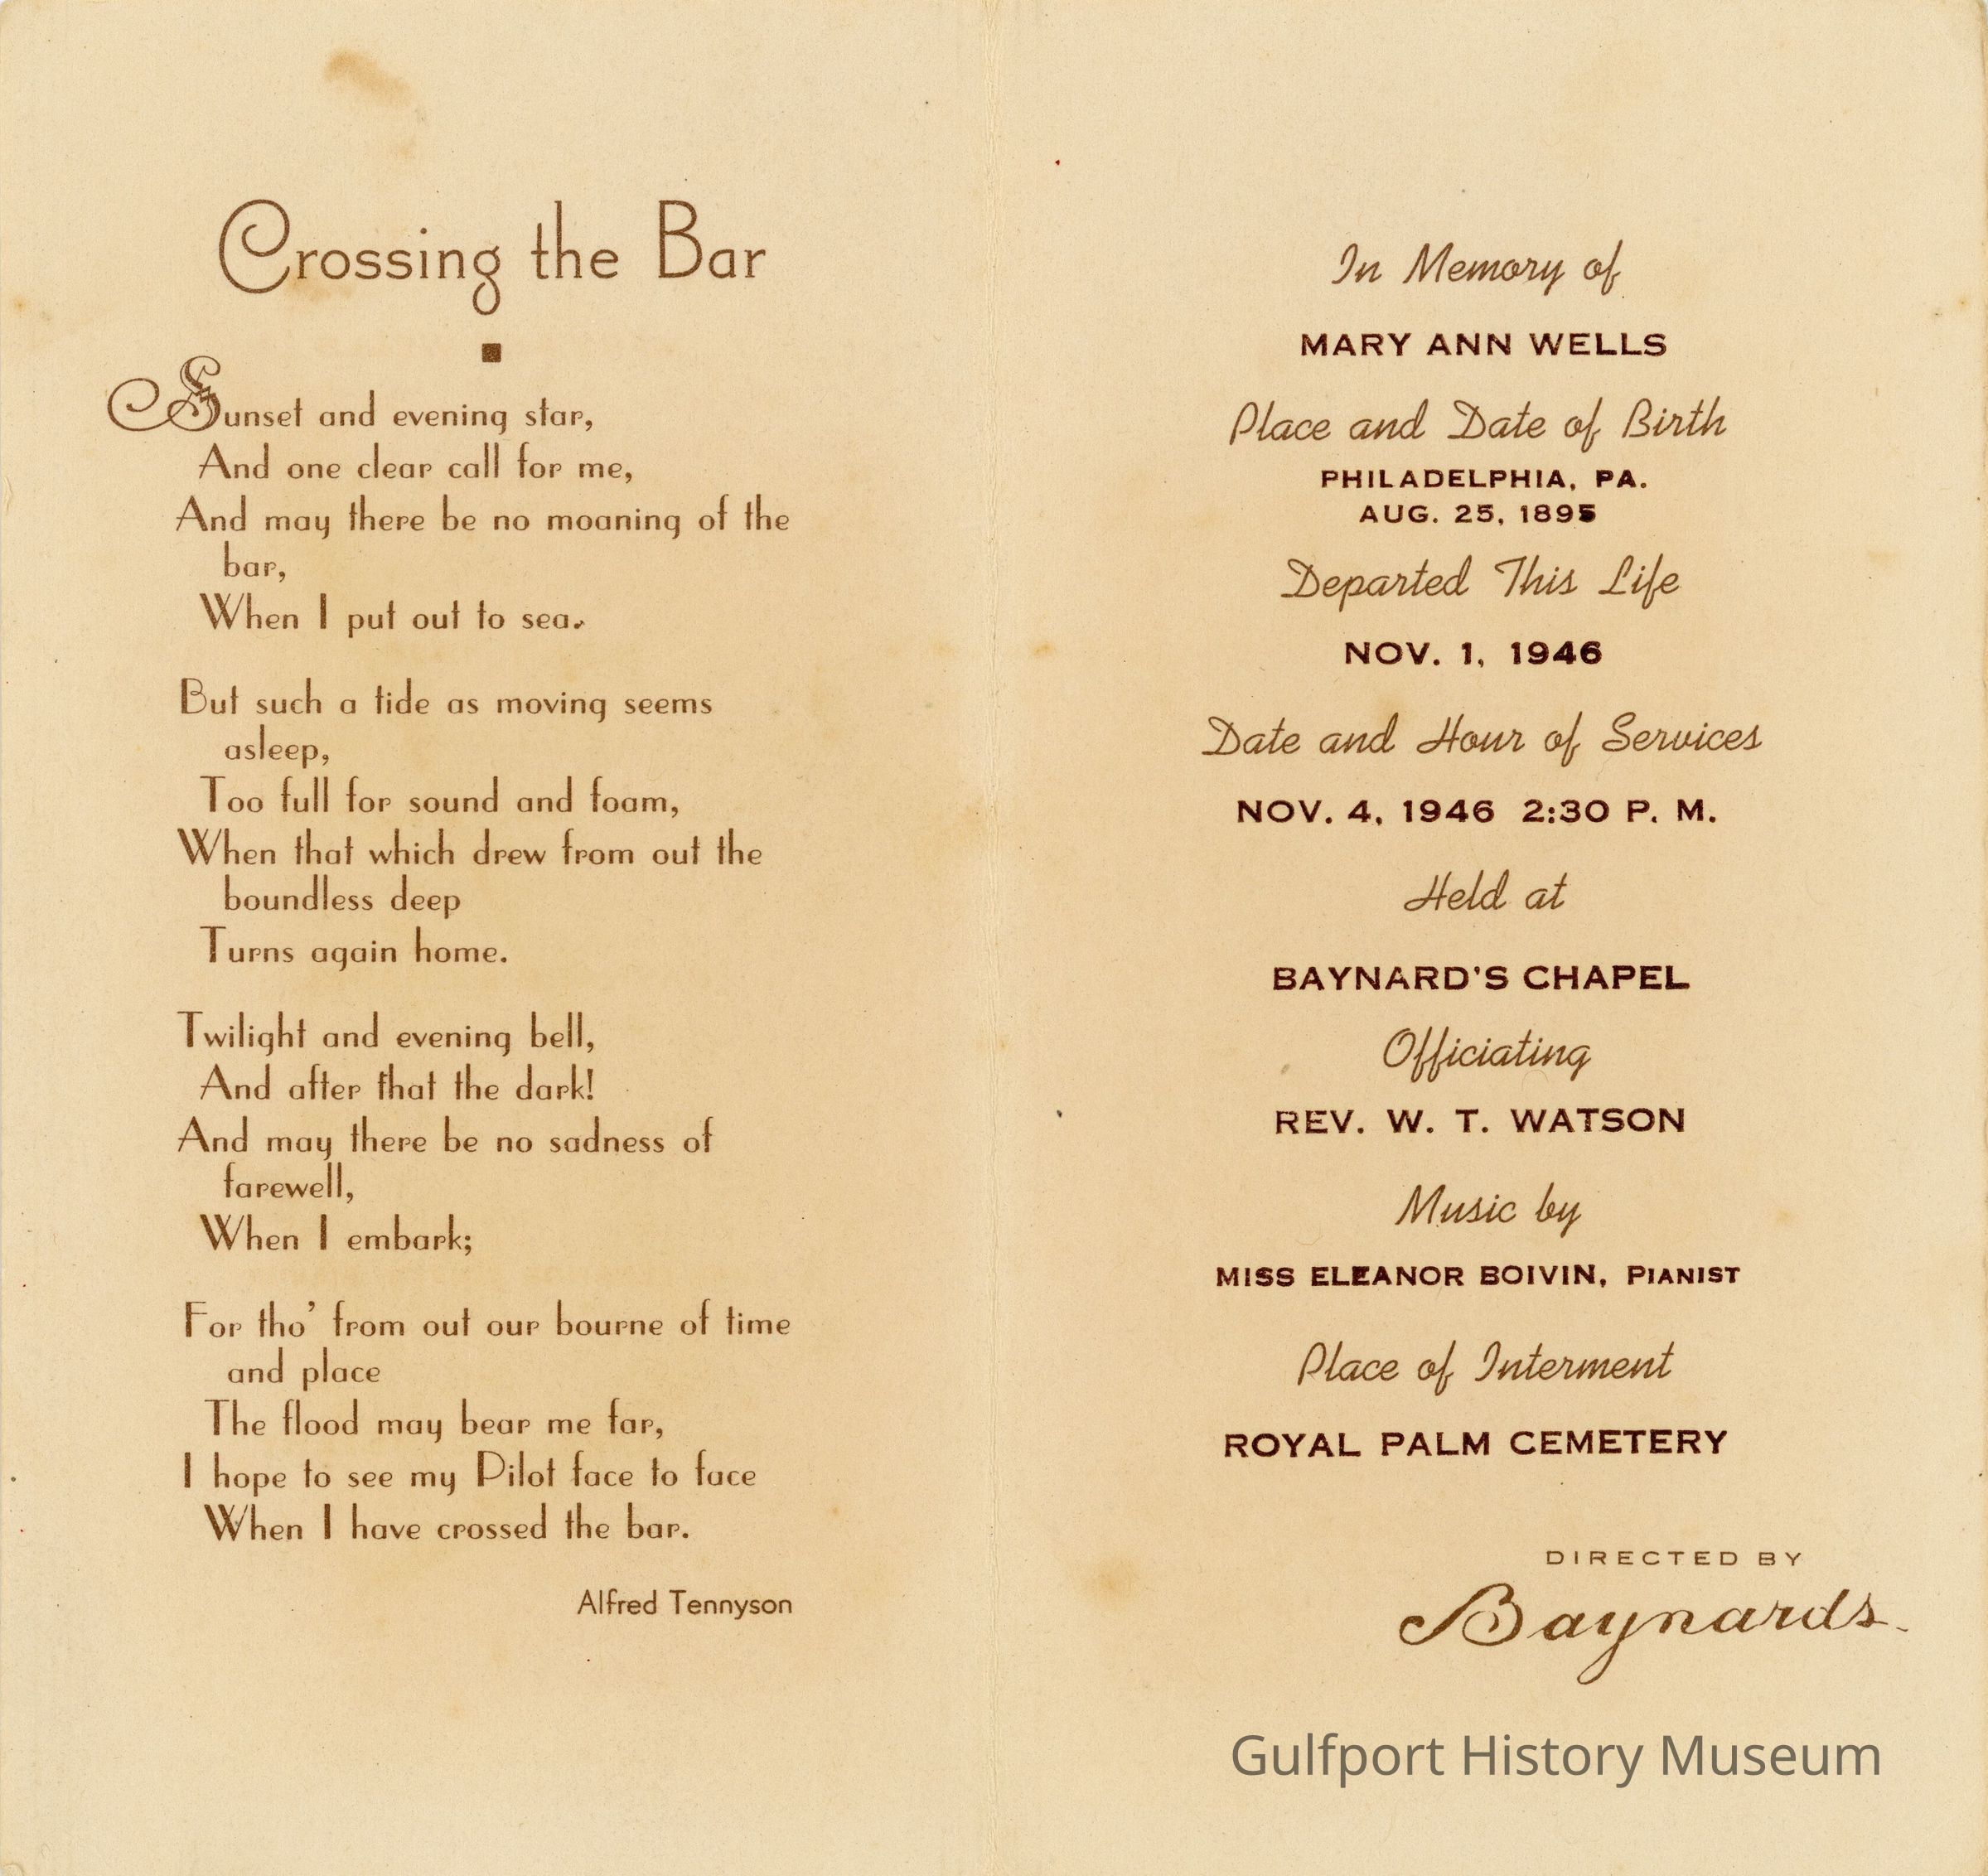 Crossing the Bar
Sunset and evening star,
And one clear call for me,
And may there be no moaning of the
bar,
When I put out to sea.
But such a tide as moving seems
asleep,
Too full for sound and foam,
When that which drew from out the
boundless deep
Turns again home.
Twilight and evening bell,
And after that the dark!
And may there be no sadness of
farewell,
When I embark;
For tho' from out our bourne of time
and place
The flood may bear me far,
I hope to see my Pilot face to face
When I have crossed the bar.
Alfred Tennyson
In Memory of
MARY ANN WELLS
Place and Date of Birth
PHILADELPHIA, PA.
AUG. 25, 1895
Departed This Life
NOV. 1, 1946
Date and Hour of Services
NOV. 4, 1946 2:30 P. M.
Held at
BAYNARD'S CHAPEL
Officiating
REV. W. T. WATSON
Music by
MISS ELEANOR BOIVIN, PIANIST
Place of Interment
ROYAL PALM CEMETERY
DIRECTED BY
Baynards.
Gulfport History Museum